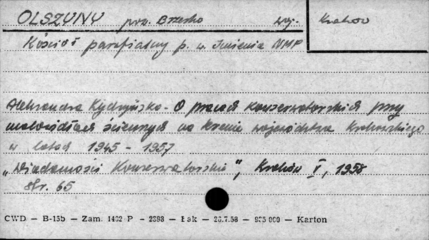 OLSZYNY pow. Brzesko woj. Kraków
Kościół parafialny p. w. Imienia NMP
Aleksandra Kydryńska - O pracach konserwatorskich przy
malowidłach ściennych na terenie województwa Krakowskiego
w latach 1945 - 1957
„Wiadomości Konserwatorskie", Kraków I, 1958
str. 65
CWD — B-15b — Zam. 1492 P - 2598 — Łak — 28.7.58 — 925 000 — Karton